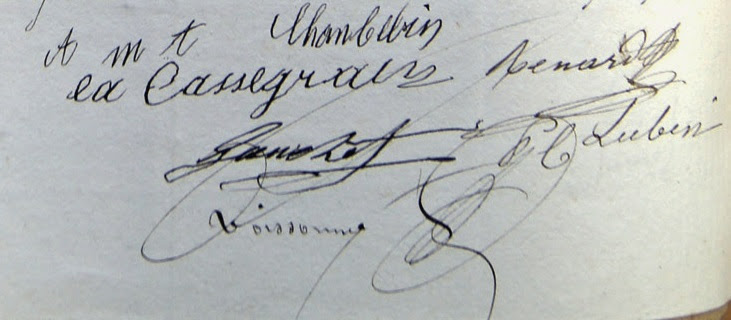 A m t Chambellin
ea Cassegrain Renard
Gauchet P C Lubin
Poissonnie